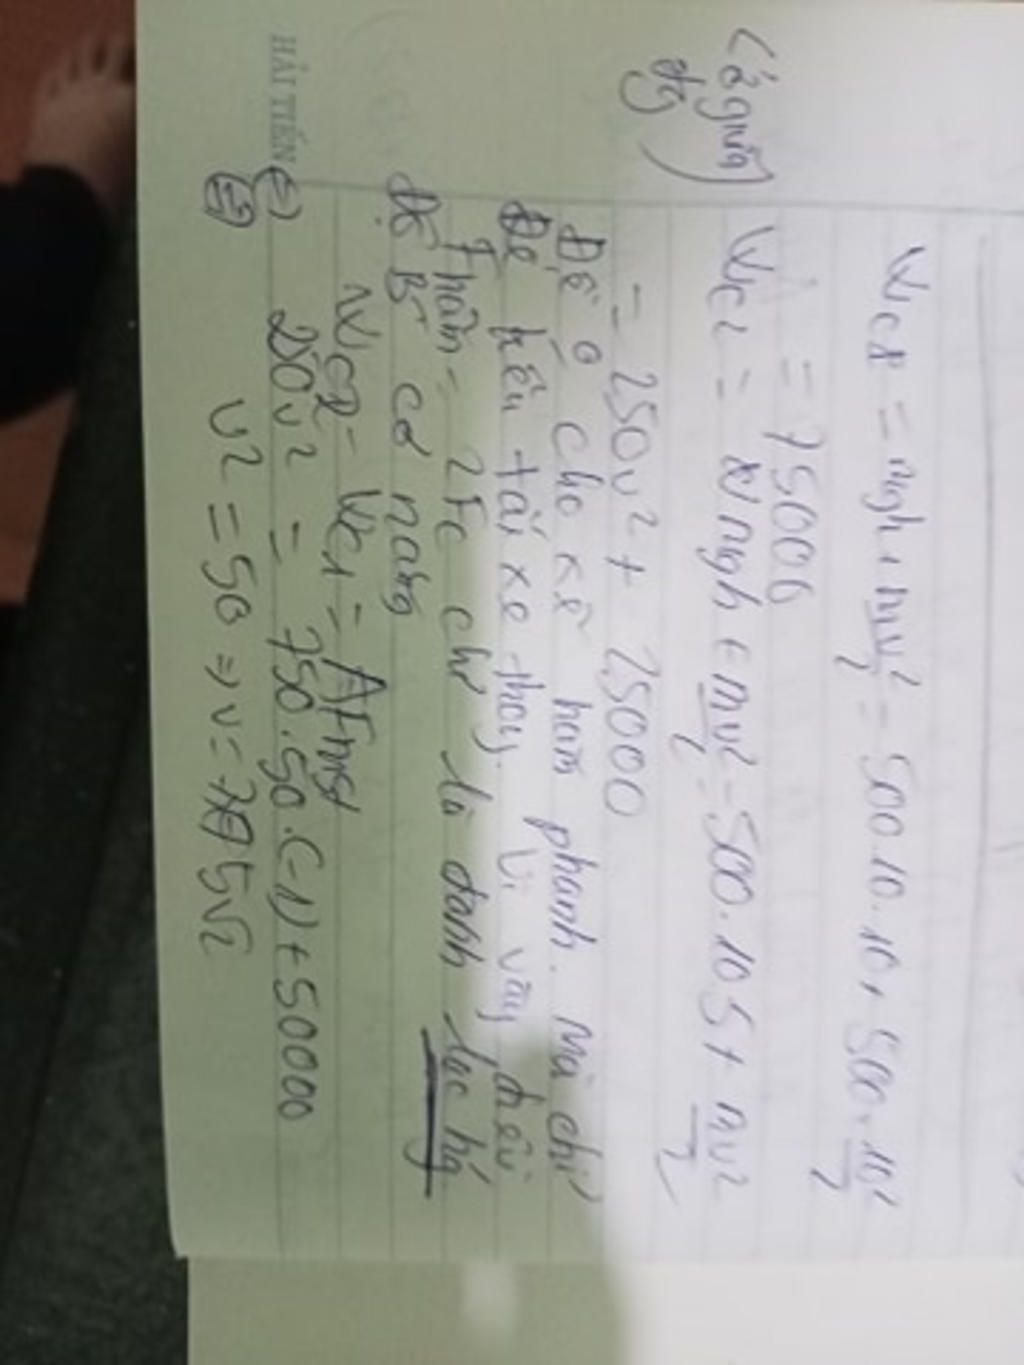 Wc1 = mgh + mv²/2 = 500.10.10 + 500.10²/2
= 75000
(ở giữa dốc)
Wc2 = mgh + mv²/2 = 500.10.5 + mv²/2
= 250v² + 25000
Đề cho xe hãm phanh. mà chỉ
tài xe thay. Vì vậy
2Fc chứ là
cơ năng
HẢI TIẾN
Wc2 - Wc1 = AFmst
250v² = 750.50.(-1) + 50000
v² = 50 => v = 5√2